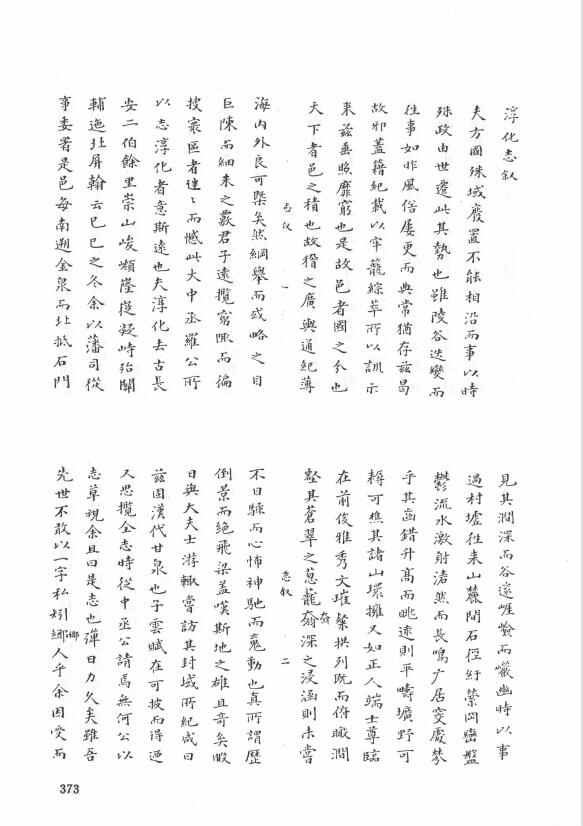 淳化志叙
夫方國殊域廢置不能相沿而事以時
殊政由世遷此其勢也雖陵谷迭變而
往事如昨風俗屢更而典常猶存茲曷
故邪蓋籍紀載以牢籠綜萃所以訓示
来茲垂照靡窮也是故邑者國之分也
天下者邑之積也故稽之廣輿通紀薄
志叙 一
海内外良可槩矣然綱舉而或略之目
巨陳而細未之覈君子遠攬窮陬而徧
披寰區者往〻而憾此大中丞羅公所
以志淳化者意斯遠也夫淳化去古長
安二伯餘里崇山峻嶺隆嶷凝峙殆關
輔迤北屏翰云己巳之冬余以藩司從
事委署是邑每南遡金泉而北抵石門
見其澗深而谷邃崕嶮而巘幽時以事
過村墟往来山麓間石徑紆縈岡巒盤
鬱流水激射㴉然而長鳴广居窔處棼
乎其齒錯升髙而眺逑則平疇壙野可
耨可樵其諸山環擁又如正人端士尊臨
在前俊雅秀文璀粲拱列既而俯瞰澗
壑其蒼翠之蔥蘢㵝深之浸涵則未嘗
志叙 二
不目駴而心怖神馳而魂動也真所謂歷
倒景而絶飛梁蓋嘆斯地之雄且奇矣暇
日與大夫士游輙嘗訪其封域所紀咸曰
茲固漢代甘泉也子雲賦在可披而得迺
又思攬全志時從中丞公請焉無何公以
志草視余且曰是志也殫日力久矣雖吾
先世不敢以一字私矧鄉人乎余因受而
373